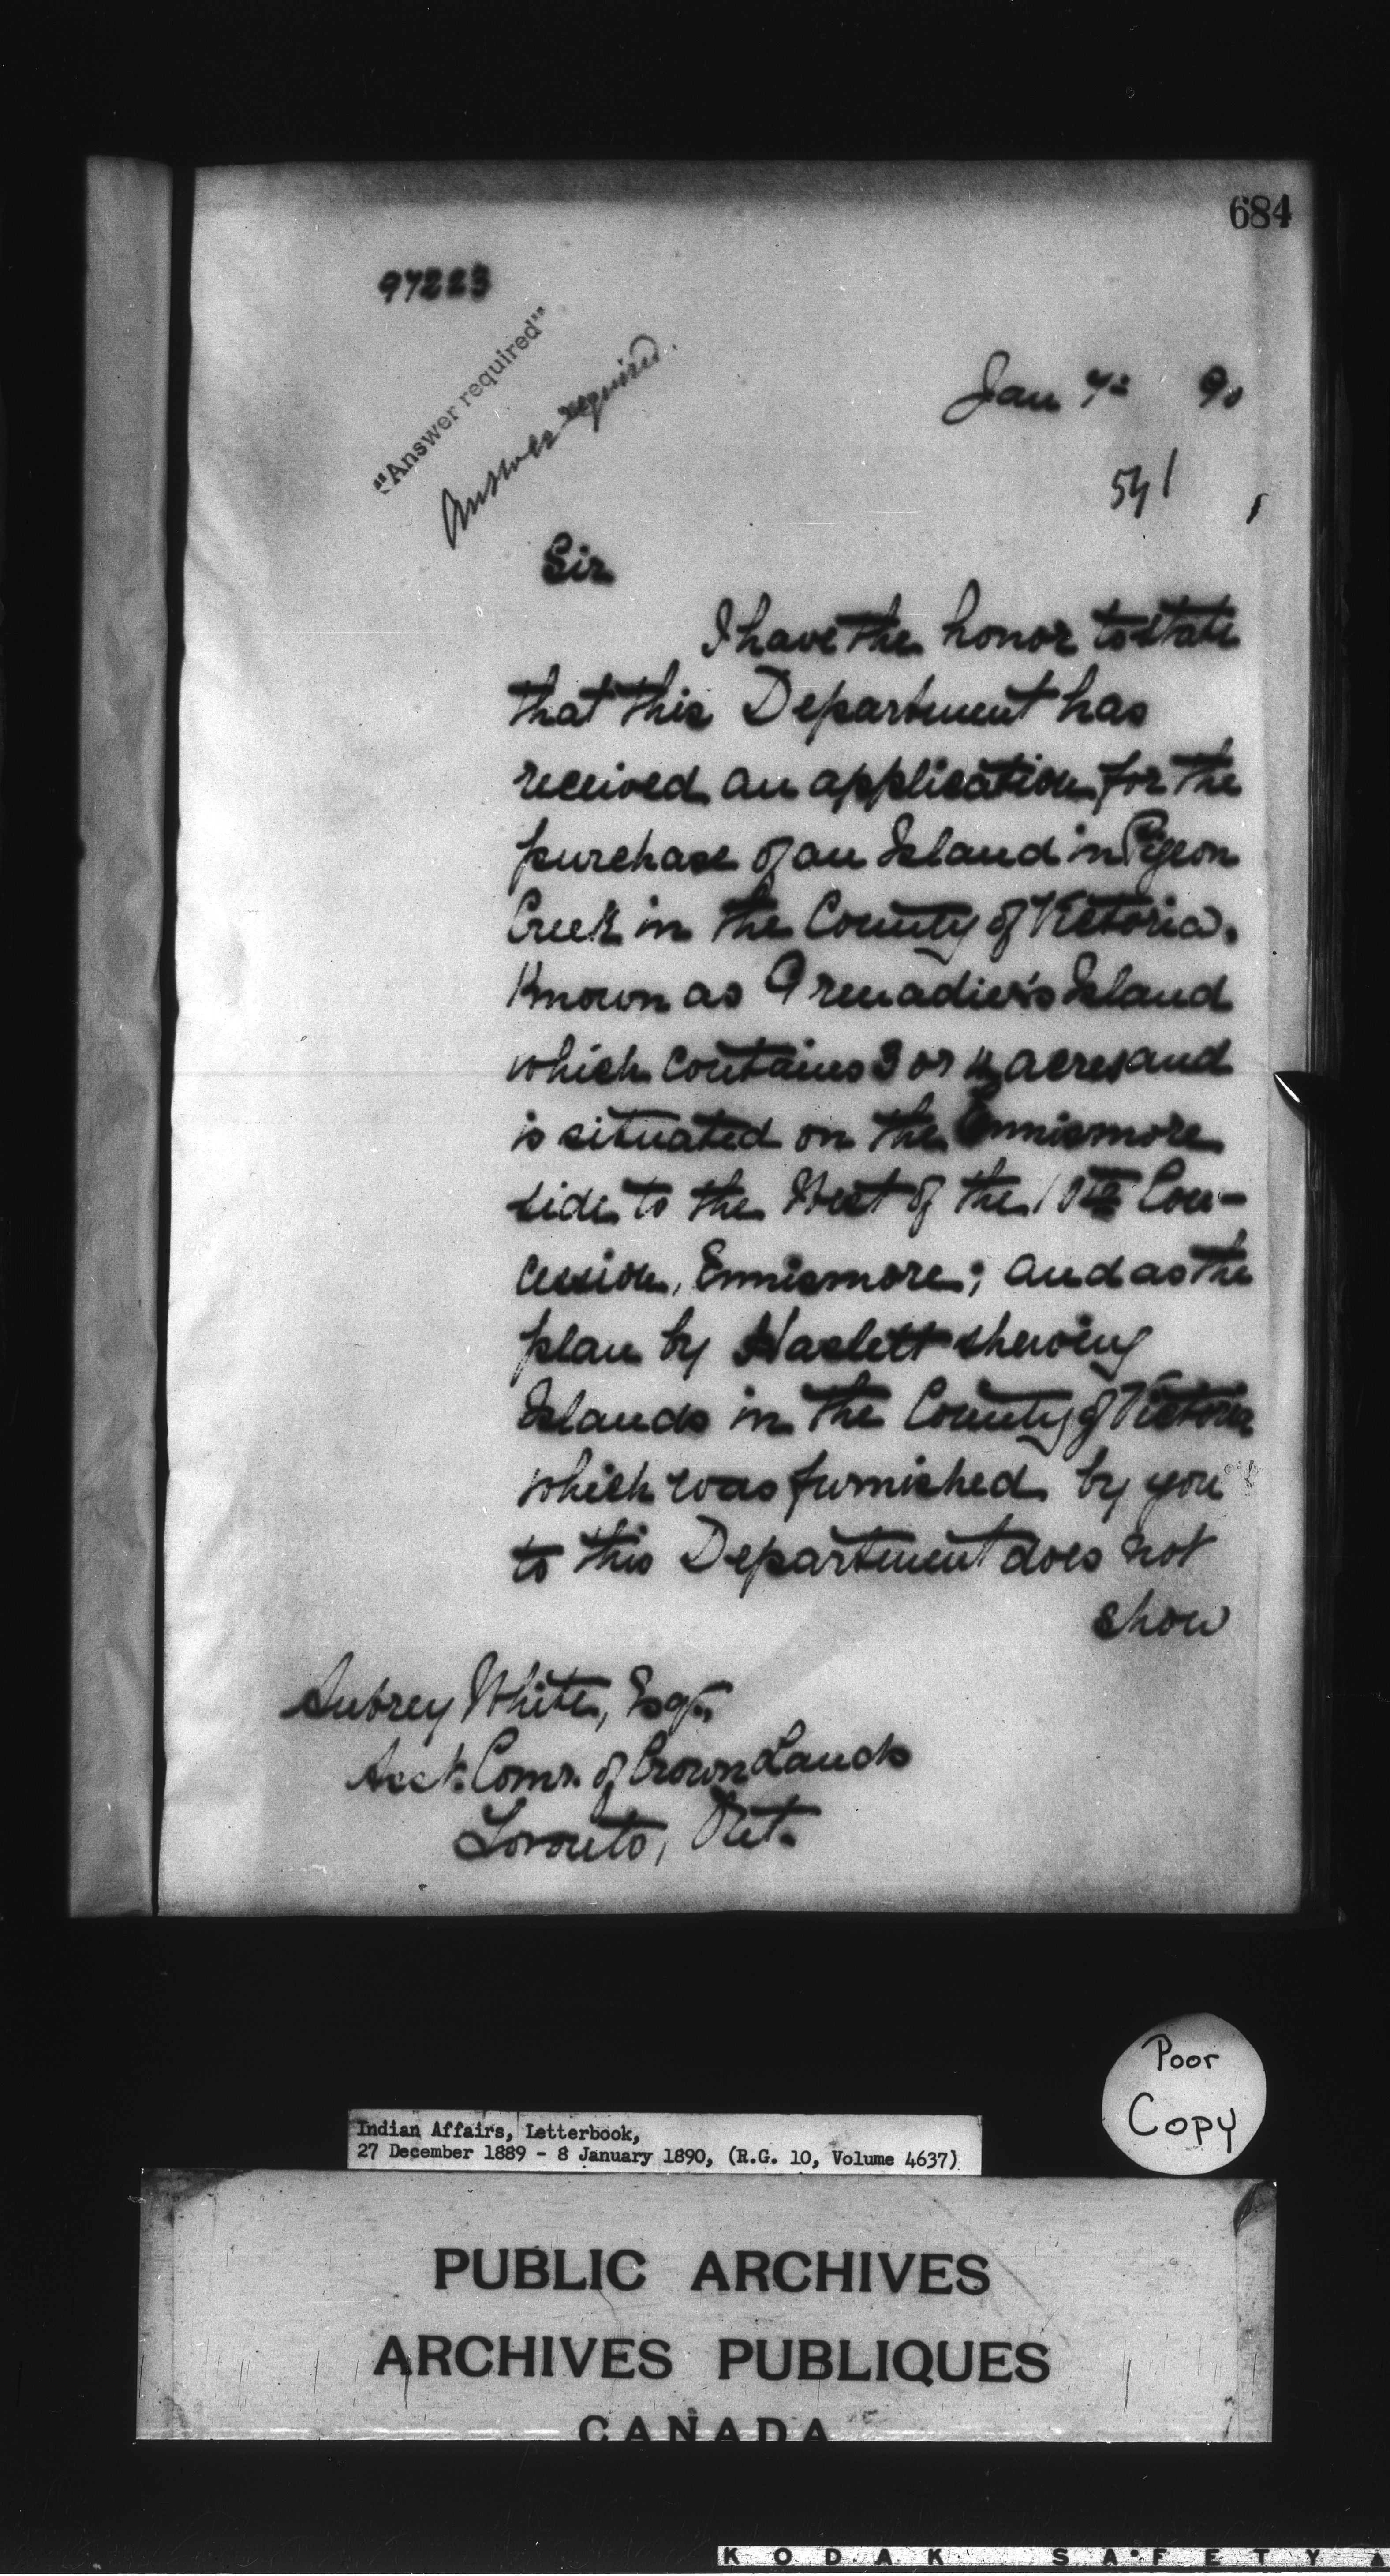 684
97223
"Answer required"
Answer required.
Jan 7th 90
541
Sir
I have the honor to state
that this Department has
received an application for the
purchase of an Island in Pigeon
Creek in the County of Victoria.
Known as Grenadier's Island
which contains 3 or 4 acres and
is situated on the Ennismore
side to the West of the 10th Con-
cession, Ennismore; and as the
plan by Haslett shewing
Islands in the County of Victoria
which was furnished by you
to this Department does not
show
Aubrey White, Esqr.,
Asst. Comr. of Crown Lands
Toronto, Ont.
Poor
Copy
Indian Affairs, Letterbook,
27 December 1889 - 8 January 1890, (R.G. 10, Volume 4637)
PUBLIC ARCHIVES
ARCHIVES PUBLIQUES
CANADA
KODAK SAFETY